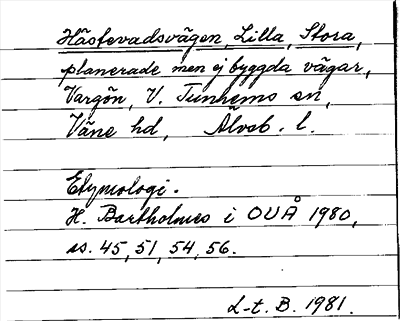 Hästevadsvägen, Lilla, Stora,
planerade men ej byggda vägar,
Vargön, V. Tunhems sn,
Väne hd, Älvsb. l.
Etymologi.
H. Bartholmes i OUÅ 1980,
ss. 45, 51, 54, 56.
L-t. B. 1981.